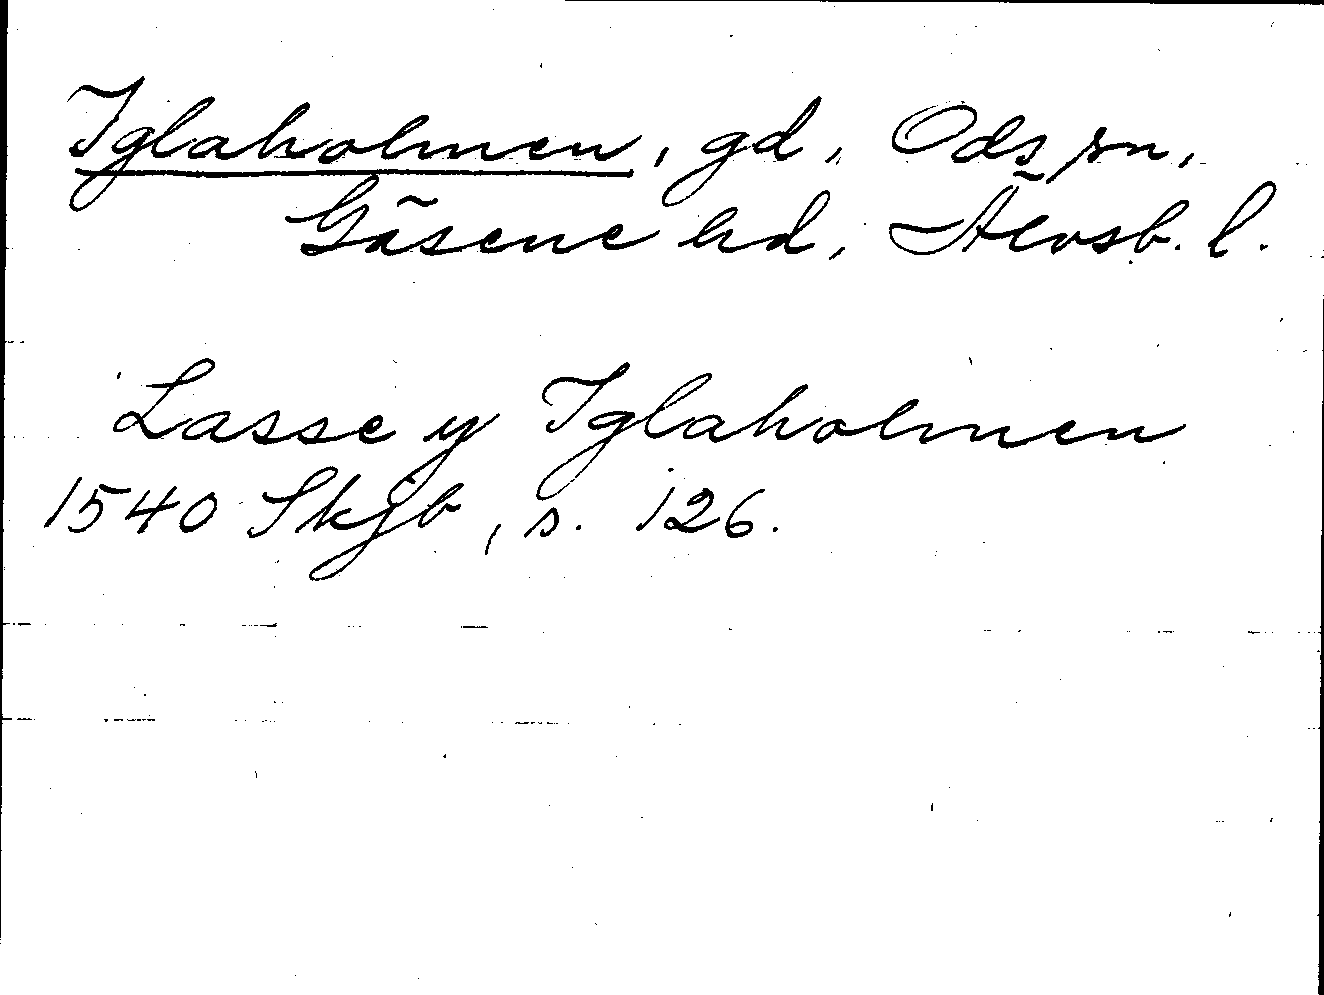 Iglaholmen, gd, Ods sn,
Gäsene hd, Älvsb. l.
Lasse y Iglaholmen
1540 Skjb, s. 126.